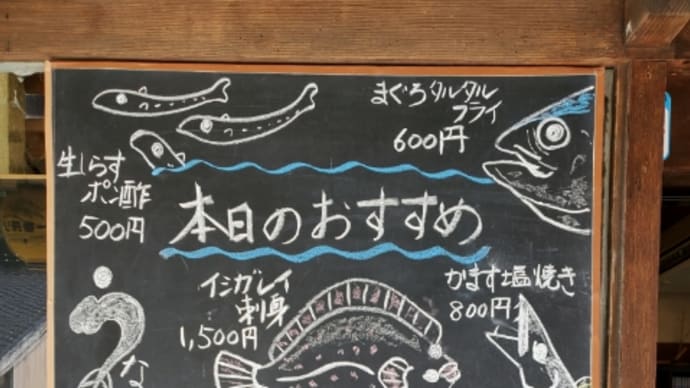 まぐろタルタル
フライ
600円
生しらす
ポン酢
500円
本日のおすすめ
イシガレイ
刺身
1,500円
かます塩焼き
800円
う
な